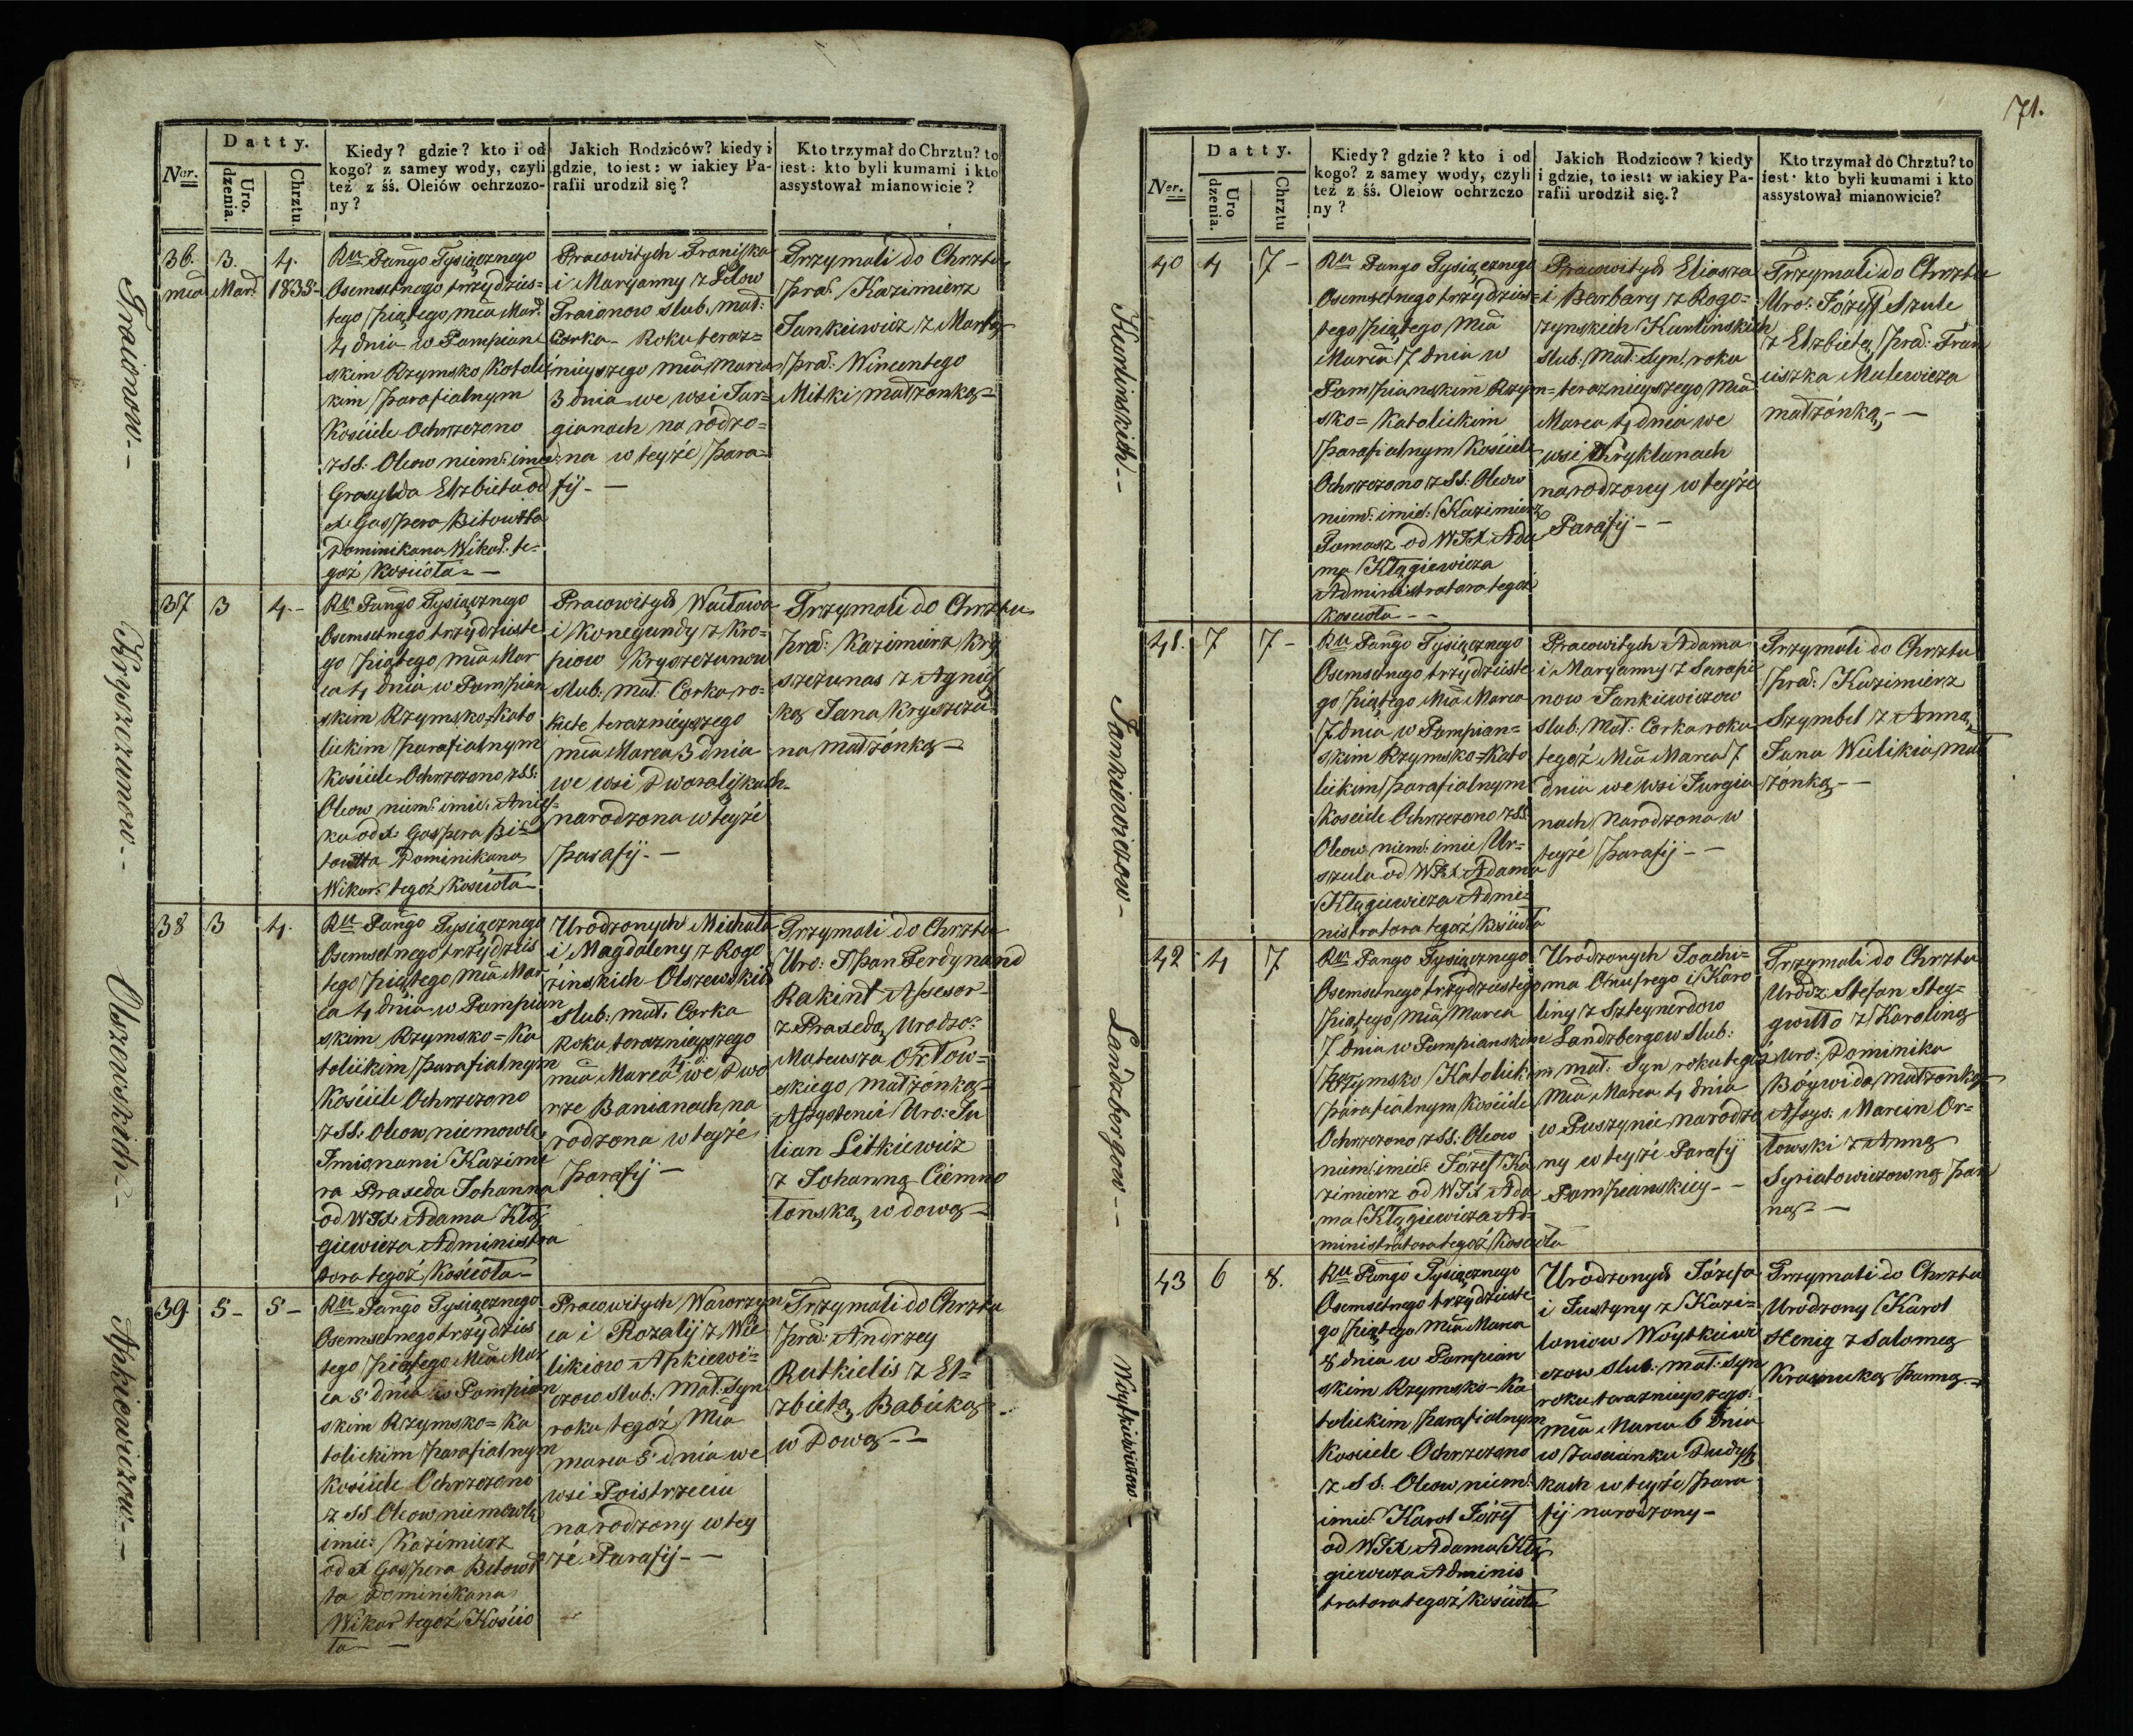 Datty.
Ner.
Uro.
dzenia.
Chrztu.
Kiedy? gdzie? kto i od
kogo? z samey wody, czyli
też z śś. Oleiów ochrzczo-
ny?
Jakich Rodziców? kiedy i
gdzie, to iest: w iakiey Pa-
rafii urodził się?
Kto trzymał do Chrztu? to
iest: kto byli kumami i kto
assystował mianowicie?
Traionow--
36. 3. 4.
mia Mar. 1835
Ru Pango Tysiącznego
Osemsetnego trzydzies=
tego piątego, mca Mar.
4 dnia w Pampian
skim Rzymsko Katolic
kim parafialnym
Kościele Ochrzczono
z SS. Oleow niem: imie
Grasylda Elzbieta od
X Gaspera Bitowtta
Dominikana Wikar. te=
goż Kościoła=—
Pracowitych Franiszka
i Maryanny z Lelow
Traionow slub. mał:
Corka- Roku teraz=
nieyszego mca Marca
3 dnia we wsi Jur=
gianach na rodzo=
na w teyże para=
fij-—
Trzymali do Chrztu
prac. Kazimierz
Jankiewicz z Martą
prac. Wincentego
Mitki małżonką—
Kryszczunow--
37 3 4.-
Ru Pango Tysiącznego
Osemsetnego trzydzieste
go piątego mca Mar
ca 4 dnia w Pampian
skim Rzymsko-Kato
lickim parafialnym
Kościele Ochrzczono z SS:
Oleow niem: imie. Anies=
ka od X. Gaspera Bi=
towtta Dominikana
Wikar. tegoż Kościoła—
Pracowitych Wacława
i Konegundy z Kro=
piow Kryszczunow
slub. mał. Corka ro=
ku te. teraznieyszego
mca Marca 3 dnia
we wsi Dwaraliszkach-
narodzona w teyże
parafij.—
Trzymali do Chrztu
Prac. Kazimierz Kry
szczunas z Agnisz
ką Jana Kryszczu
na małżonką—
Olszewskich--
38 3 4.
Ru Pango Tysiącznego
Osemsetnego trzydzies
tego piątego, mca Mar
ca 4 dnia w Pampian
skim Rzymsko=Ka
tolickim parafialnym
Kościele Ochrzczono
z SS: Oleow niemowle
Imionami Kazimi
ra Praxeda Johanna
od WJX Adama Kłą
giewicza Administra
tora tegoż Kościoła—
Urodzonych Michała
i Magdaleny z Rogo
żinskich Olszewskich
Slub: mał. Corka
Roku teraznieyszego
mca Marca 3 d: we Dwo
rze Banianach na
rodzona w teyże
parafij—
Trzymali do Chrztu
Uro: JPan Ferdynand
Rakint Assesor—
z Praxedą Urodzo:
Mateusza Orłow=
skiego małżonką—
Assystenci Uro: Ju
lian Litkiewicz
z Johanną Ciemno
łonską wdową—
Apkiewiczow--
39 5- 5-
Ru Pango Tysiącznego
Osemsetnego trzydzies
tego piątego Mca Mar
ca 5 dnia w Pampian
skim Rzymsko=Ka
tolickim parafialnym
Kościele Ochrzczono
z SS Oleow niemowle
imie: Kazimierz
od X Gaspera Bitowt
ta Dominikana
Wikar tegoż Kościo
ła—
Pracowitych Wawrzyn
ca i Rozalij z Wie
likiow Apkiewi=
czow slub: Mał: Syn
roku tegoż Mca
marca 5 dnia we
wsi Poistrzeciu
narodzony w tey
że Parafij-—
Trzymali do Chrztu
prac: Andrzey
Rutkielis z El=
zbietą Babicką—
wdową-—
71.
Datty.
Ner.
Uro
dzenia.
Chrztu
Kiedy? gdzie? kto i od
kogo? z samey wody, czyli
też z śś. Oleiow ochrzczo
ny?
Jakich Rodziców? kiedy
i gdzie, to iest: w iakiey Pa-
rafii urodził się.?
Kto trzymał do Chrztu? to
iest: kto byli kumami i kto
assystował mianowicie?
Kurlinskich--
40 4 7-
Ru Pango Tysiącznego
Osemsetnego trzydzies=
tego piątego Mca
Marca 7 dnia w
Pampianskim Rzym=
sko=Katolickim
parafialnym Kościele
Ochrzczono z SS: Oleow
niem: imie: Kazimierz
Tomasz od WJX Ada
ma Kłągiewicza
Administratora tegoż
Kościoła--
Pracowitych Eliasza
i Barbary z Rogo=
rzynskich Kurlinskich
slub. Mał: Syn, roku
teraznieyszego Mca
Marca 4 dnia we
wsi Skryklunach
narodzony w teyże
Parafij--
Trzymali do Chrztu
Uro: Józeff Szule
z Elzbietą prac: Fran
ciszka Malewicza
małżónką--
Jankiewiczow-
41. 7 7-
Ru Pango Tysiącznego
Osemsetnego trzydzieste
go piątego Mca Marca
7 dnia w Pampian=
skim Rzymsko=Kato
lickim parafialnym
Kościele Ochrzczono z SS
Oleow niem: imie Ur=
szula od WJX Adama
Kłągiewicza Admi=
nistratora tegoż Kościoła
Pracowitych Adama
i Maryanny z Sarapi
now Jankiewiczow
slub: Mał: Corka roku
tegoż Mca Marca 7
dnia we wsi Jurgia
nach Narodzona w
teyże parafij--
Trzymali do Chrztu
prac: Kazimierz
Szymbel z Anną
Jana Wielikia mał
żónką--
Landzborgow--
42 4 7
Ru Pango Tysiącznego
Osemsetnego trzydziestego
piątego, mca Marca
7 dnia w Pampianskim
Rzymsko Katolickim
parafialnym Kościele
Ochrzczono z SS: Oleow
niem: imie: Józef Ka
zimierz od WJX Ada
ma Kłągiewicza Ad=
ministratora tegoż Kościoła
Urodzonych Joachi=
ma Onufrego i Karo
liny z Sztynerdow
Landzbergow slub:
mał: Syn roku tegoż
Mca Marca 4 dnia
w Puszynie narodzo
ny w teyże Parafij
Pampianskiey--
Trzymali do Chrztu
Urodz: Stefan Stey=
gwiłło z Karoliną
Uro: Dominika
Bóywida, małżonką
Assys: Marcin Or=
łowski z Anną
Syriatowiczowną Pan
ną-—
Woytkiewiczow-
43 6 8.
Ru Pango Tysiącznego
Osemsetnego trzydzieste
go piątego mca Marca
8 dnia w Pampian
skim Rzymsko-Ka
tolickim parafialnym
Kościele Ochrzczono
z SS. Oleow, niem:
imie: Karol Józef
od WJX Adama Kłą
giewicza Adminis
tratora tegoż Kościoła
Urodzonych Józefa
i Justyny z Kazi=
loniow Woytkiewi
czow slub: mał: Syn
roku teraznieyszego.
mca Marca 6 dnia
w zascianku Dudysz
kach w teyże para
fij narodzony-
Trzymali do Chrztu
Urodzony Karol
Henig z Salomeą
Krasnicką Panną—